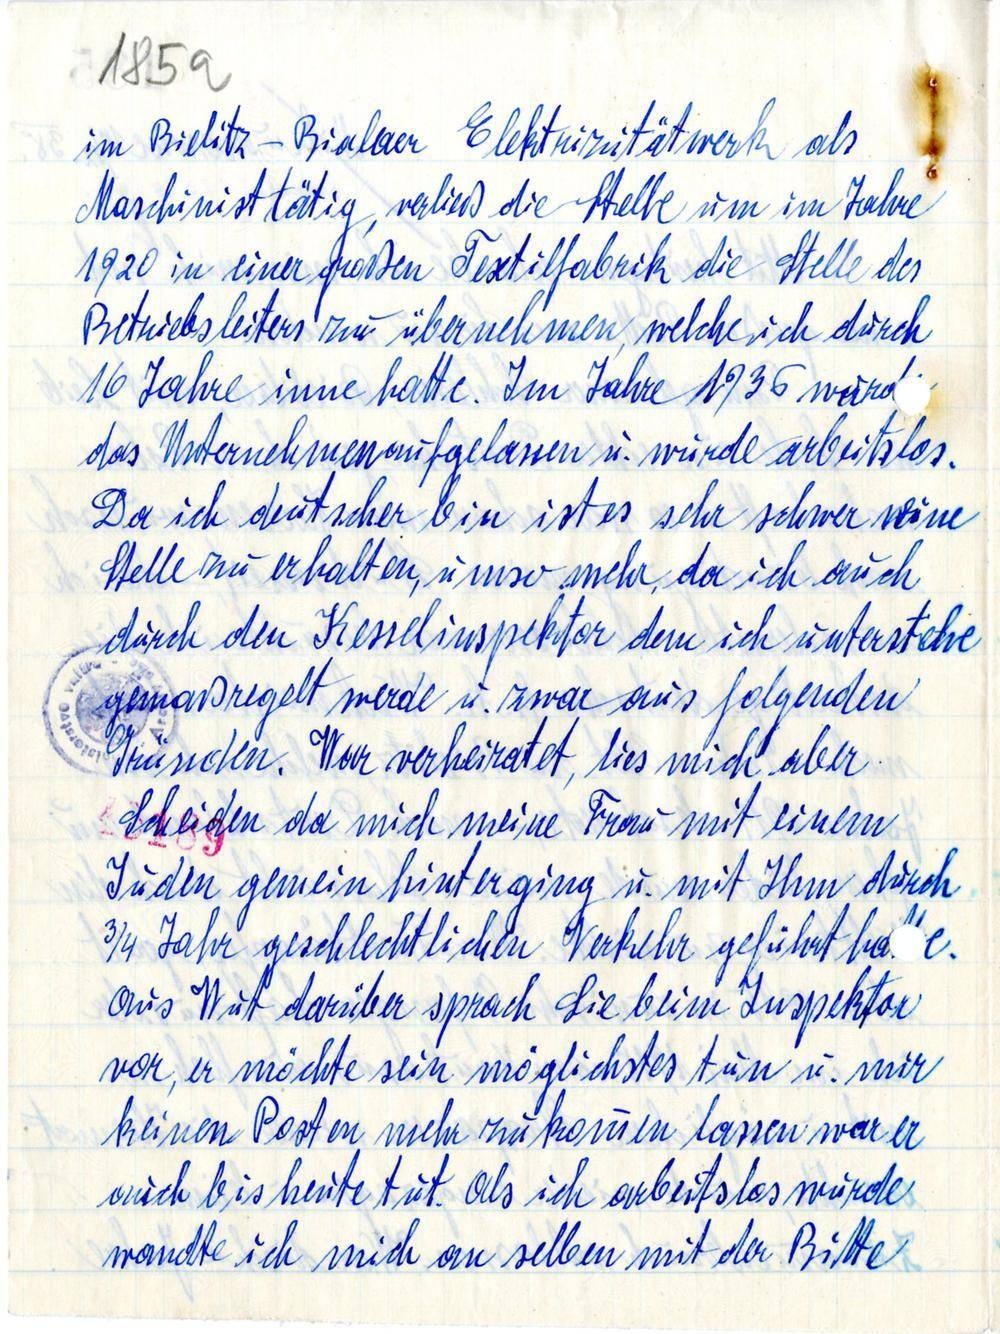 185a
im Bielitz-Bialaer Elektrizitätwerk als
Maschinist tätig, verließ die Stelle um im Jahre
1920 in einer großen Textilfabrik die Stelle des
Betriebsleiters zu übernehmen, welche ich durch
16 Jahre inne hatte. Im Jahre 1936 wurde
das Unternehmen aufgelassen u. wurde arbeitslos.
Da ich deutscher bin ist es sehr schwer eine
Stelle zu erhalten, umso mehr, da ich auch
durch den Kesselinspektor dem ich unterstehe
gemaßregelt werde u. zwar aus folgenden
Gründen. War verheiratet, lies mich aber
Scheiden da mich meine Frau mit einem
Juden gemein hinterging u. mit Ihm durch
3/4 Jahr geschlechtlichen Verkehr geführt hatte.
Aus Wut darüber sprach Sie beim Inspektor
vor, er möchte sein möglichstes tun u. mir
keinen Posten mehr zukom̄en lassen was er
auch bis heute tut. Als ich arbeitslos wurde
wandte ich mich an selben mit der Bitte